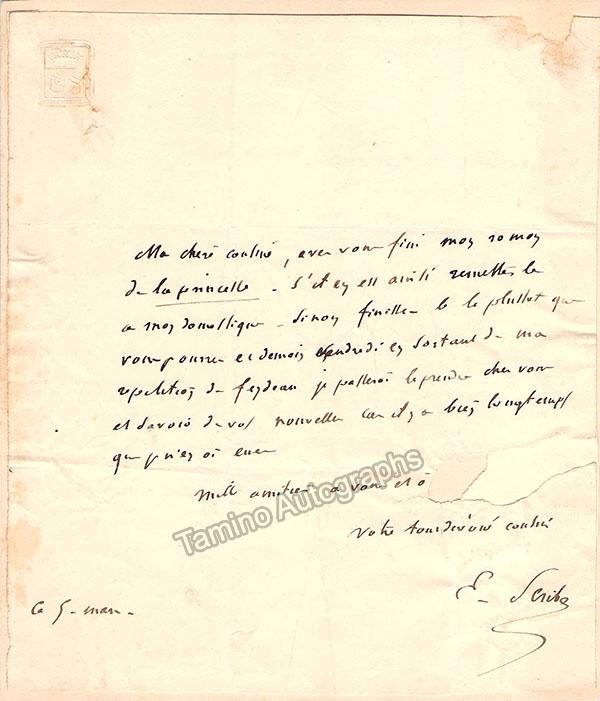 Ma chere cousine, avez vous fini mon roman
de la princesse - S'il en est ainsi remettez le
a mon domestique - Sinon finissez le le plustot que
vous pourrez et demain vendredi en sortant de ma
repetition de feydeau je passerai le prendre chez vous
et savoir de vos nouvelles car il y a bien longtemps
que je n'en ai eues
mille amities a vous et à
votre tout dévoué cousin
E- Scribe
Ce 5- mars-
Tamino Autographs